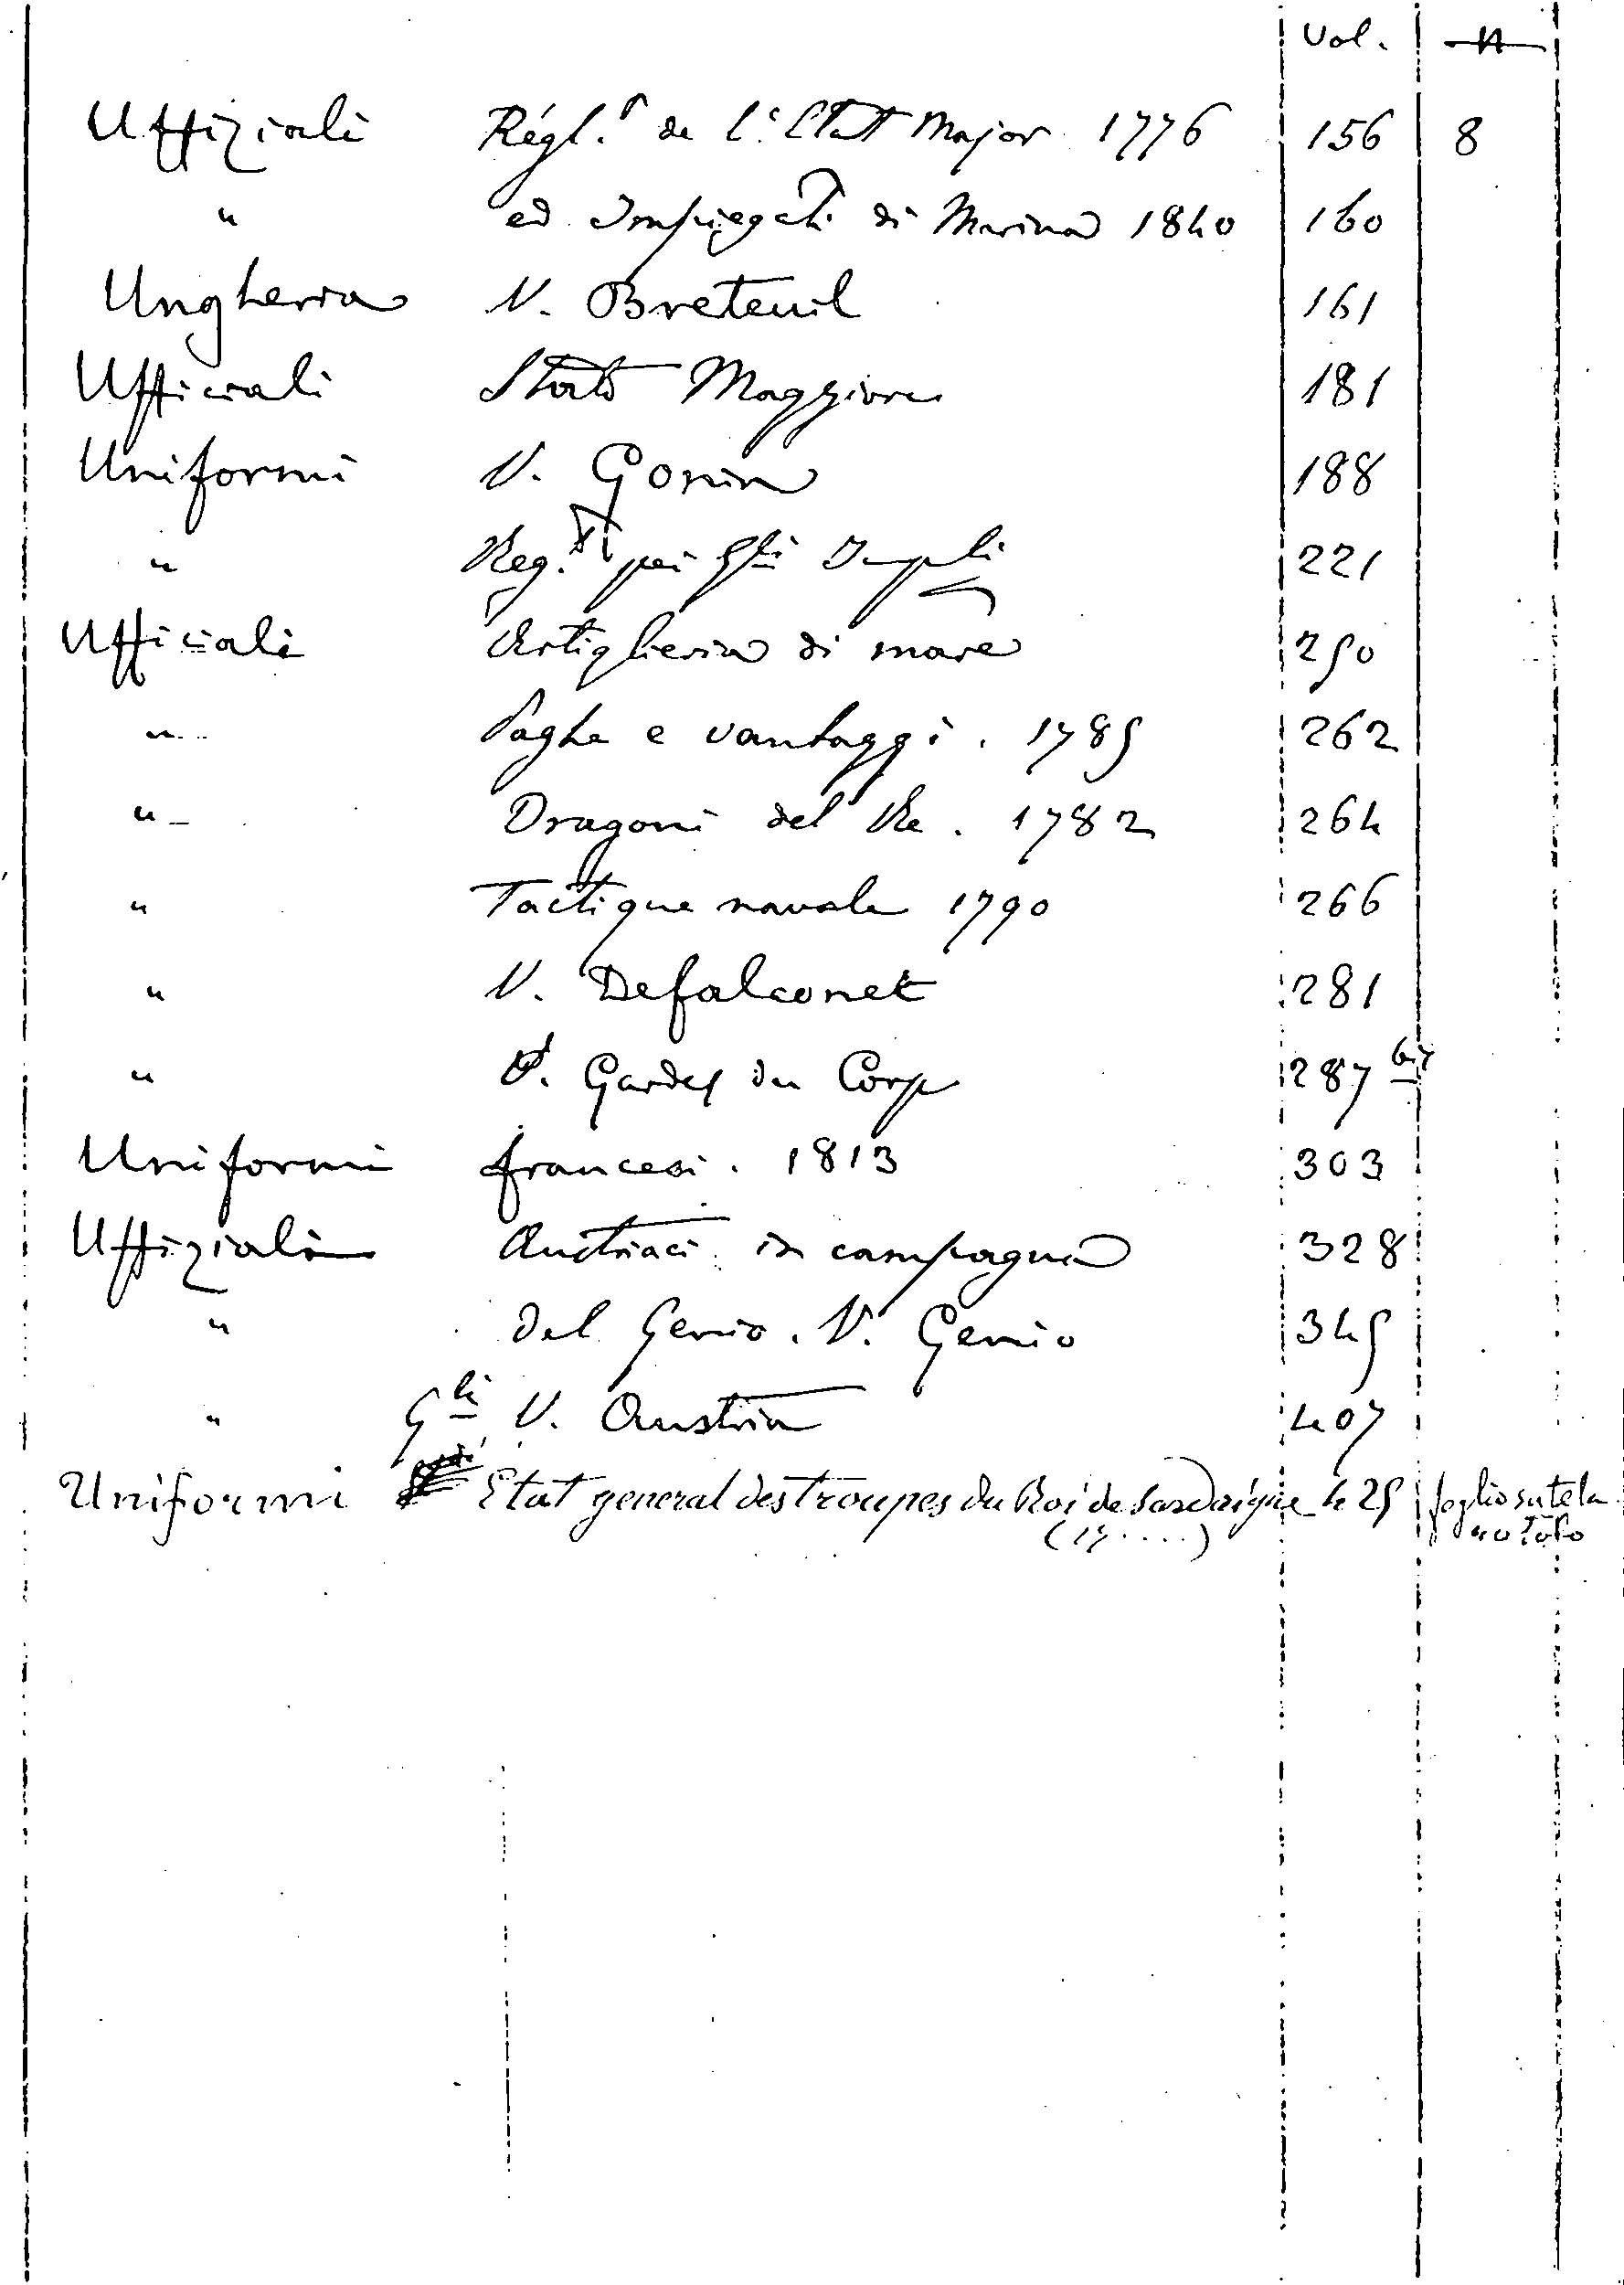 Vol. n
Uffiziali Régl.t de l'Etat Major 1776 156 8
" ed Impiegati di Marina 1840 160
Ungheria V. Breteuil 161
Ufficiali Stato Maggiore 181
Uniformi V. Gonin 188
" Reg.ti pei Gli Imp.li 221
Ufficiali Artiglieria di mare 250
" Paghe e vantaggi. 1785 262
" Dragoni del Re. 1782 264
" Tactique navale 1790 266
" V. Defalconet 281
" V. Gardes du Corp 287 bis
Uniformi francesi. 1813 303
Uffiziali Austriaci in campagna 328
" del Genio. V. Genio 345
" Gli V. Austria 407
Uniformi Etat general des troupes du Roi de Sardaigne 425 foglio su tela
(17....) rotolo